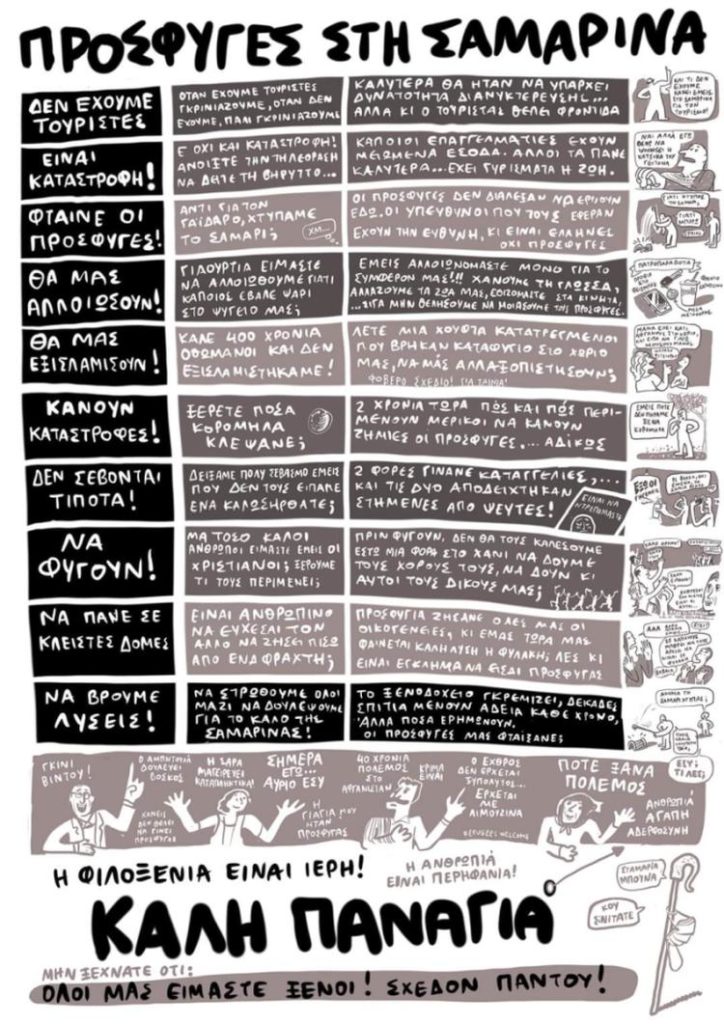 ΠΡΟΣΦΥΓΕΣ ΣΤΗ ΣΑΜΑΡΙΝΑ
ΔΕΝ ΕΧΟΥΜΕ
ΤΟΥΡΙΣΤΕΣ
ΟΤΑΝ ΕΧΟΥΜΕ ΤΟΥΡΙΣΤΕΣ
ΓΚΡΙΝΙΑΖΟΥΜΕ, ΟΤΑΝ ΔΕΝ
ΕΧΟΥΜΕ, ΠΑΛΙ ΓΚΡΙΝΙΑΖΟΥΜΕ
ΚΑΛΥΤΕΡΑ ΘΑ ΗΤΑΝ ΝΑ ΥΠΑΡΧΕΙ
ΔΥΝΑΤΟΤΗΤΑ ΔΙΑΝΥΚΤΕΡΕΥΣΗΣ...
ΑΛΛΑ ΚΙ Ο ΤΟΥΡΙΣΤΑΣ ΘΕΛΕΙ ΦΡΟΝΤΙΔΑ
ΕΙΝΑΙ
ΚΑΤΑΣΤΡΟΦΗ!
Ε ΟΧΙ ΚΑΙ ΚΑΤΑΣΤΡΟΦΗ!
ΑΝΟΙΞΤΕ ΤΗΝ ΤΗΛΕΟΡΑΣΗ
ΝΑ ΔΕΙΤΕ ΤΗ ΘΗΡΥΤΤΟ...
ΚΑΠΟΙΟΙ ΕΠΑΓΓΕΛΜΑΤΙΕΣ ΕΧΟΥΝ
ΜΕΙΩΜΕΝΑ ΕΣΟΔΑ. ΑΛΛΟΙ ΤΑ ΠΑΝΕ
ΚΑΛΥΤΕΡΑ... ΕΧΕΙ ΓΥΡΙΣΜΑΤΑ Η ΖΩΗ.
ΦΤΑΙΝΕ ΟΙ
ΠΡΟΣΦΥΓΕΣ!
ΑΝΤΙ ΓΙΑ ΤΟΝ
ΓΑΪΔΑΡΟ, ΧΤΥΠΑΜΕ
ΤΟ ΣΑΜΑΡΙ;
ΧΜ...
ΟΙ ΠΡΟΣΦΥΓΕΣ ΔΕΝ ΔΙΑΛΕΞΑΝ ΝΑ ΕΡΘΟΥΝ
ΕΔΩ. ΟΙ ΥΠΕΥΘΥΝΟΙ ΠΟΥ ΤΟΥΣ ΕΦΕΡΑΝ
ΕΧΟΥΝ ΤΗΝ ΕΥΘΥΝΗ, ΚΙ ΕΙΝΑΙ ΕΛΛΗΝΕΣ
ΟΧΙ ΠΡΟΣΦΥΓΕΣ
ΘΑ ΜΑΣ
ΑΛΛΟΙΩΣΟΥΝ!
ΓΙΑΟΥΡΤΙΑ ΕΙΜΑΣΤΕ
ΝΑ ΑΛΛΟΙΩΘΟΥΜΕ ΓΙΑΤΙ
ΚΑΠΟΙΟΣ ΕΒΑΛΕ ΨΑΡΙ
ΣΤΟ ΨΥΓΕΙΟ ΜΑΣ;
ΕΜΕΙΣ ΑΛΛΟΙΩΝΟΜΑΣΤΕ ΜΟΝΟ ΓΙΑ ΤΟ
ΣΥΜΦΕΡΟΝ ΜΑΣ!!! ΧΑΝΟΥΜΕ ΤΗ ΓΛΩΣΣΑ,
ΑΛΛΑΖΟΥΜΕ ΤΑ ΖΩΑ ΜΑΣ, ΕΘΙΖΟΜΑΣΤΕ ΣΤΑ ΚΙΝΗΤΑ,
...ΣΙΓΑ ΜΗΝ ΘΕΛΗΣΟΥΜΕ ΝΑ ΜΟΙΑΣΟΥΜΕ ΤΗΣ ΠΡΟΣΦΥΓΕΣ.
ΘΑ ΜΑΣ
ΕΞΙΣΛΑΜΙΣΟΥΝ!
ΚΑΛΕ 400 ΧΡΟΝΙΑ
ΟΘΩΜΑΝΟΙ ΚΑΙ ΔΕΝ
ΕΞΙΣΛΑΜΙΣΤΗΚΑΜΕ!
ΛΕΤΕ ΜΙΑ ΧΟΥΦΤΑ ΚΑΤΑΤΡΕΓΜΕΝΟΙ
ΠΟΥ ΒΡΗΚΑΝ ΚΑΤΑΦΥΓΙΟ ΣΤΟ ΧΩΡΙΟ
ΜΑΣ, ΝΑ ΜΑΣ ΑΛΛΑΞΟΠΙΣΤΗΣΟΥΝ;
ΦΟΒΕΡΟ ΣΧΕΔΙΟ! ΓΙΑ ΤΑΙΝΙΑ!
ΚΑΝΟΥΝ
ΚΑΤΑΣΤΡΟΦΕΣ!
ΞΕΡΕΤΕ ΠΟΣΑ
ΚΟΡΟΜΗΛΑ
ΚΛΕΨΑΝΕ;
2 ΧΡΟΝΙΑ ΤΩΡΑ ΠΩΣ ΚΑΙ ΠΩΣ ΠΕΡΙ-
ΜΕΝΟΥΝ ΜΕΡΙΚΟΙ ΝΑ ΚΑΝΟΥΝ
ΖΗΜΙΕΣ ΟΙ ΠΡΟΣΦΥΓΕΣ,... ΑΔΙΚΩΣ
ΔΕΝ ΣΕΒΟΝΤΑΙ
ΤΙΠΟΤΑ!
ΔΕΙΞΑΜΕ ΠΟΛΥ ΣΕΒΑΣΜΟ ΕΜΕΙΣ
ΠΟΥ ΔΕΝ ΤΟΥΣ ΕΙΠΑΜΕ
ΕΝΑ ΚΑΛΩΣΗΡΘΑΤΕ;
2 ΦΟΡΕΣ ΓΙΝΑΝΕ ΚΑΤΑΓΓΕΛΙΕΣ,...
ΚΑΙ ΤΙΣ ΔΥΟ ΑΠΟΔΕΙΧΤΗΚΑΝ
ΣΤΗΜΕΝΕΣ ΑΠΟ ΨΕΥΤΕΣ!
ΕΙΝΑΙ ΝΑ
ΝΤΡΕΠΟΜΑΣΤΕ
ΝΑ
ΦΥΓΟΥΝ!
ΜΑ ΤΟΣΟ ΚΑΛΟΙ
ΑΝΘΡΩΠΟΙ ΕΙΜΑΣΤΕ ΕΜΕΙΣ ΟΙ
ΧΡΙΣΤΙΑΝΟΙ; ΞΕΡΟΥΜΕ
ΤΙ ΤΟΥΣ ΠΕΡΙΜΕΝΕΙ;
ΠΡΙΝ ΦΥΓΟΥΝ, ΔΕΝ ΘΑ ΤΟΥΣ ΚΑΛΕΣΟΥΜΕ
ΕΣΤΩ ΜΙΑ ΦΟΡΑ ΣΤΟ ΧΑΝΙ ΝΑ ΔΟΥΜΕ
ΤΟΥΣ ΧΟΡΟΥΣ ΤΟΥΣ, ΝΑ ΔΟΥΝ ΚΙ
ΑΥΤΟΙ ΤΟΥΣ ΔΙΚΟΥΣ ΜΑΣ;
ΝΑ ΠΑΝΕ ΣΕ
ΚΛΕΙΣΤΕΣ ΔΟΜΕΣ
ΕΙΝΑΙ ΑΝΘΡΩΠΙΝΟ
ΝΑ ΕΥΧΕΣΑΙ ΤΟΝ
ΑΛΛΟ ΝΑ ΖΗΣΕΙ ΠΙΣΩ
ΑΠΟ ΕΝΑ ΦΡΑΧΤΗ;
ΠΡΟΣΦΥΓΙΑ ΖΗΣΑΝΕ ΟΛΕΣ ΜΑΣ ΟΙ
ΟΙΚΟΓΕΝΕΙΕΣ, ΚΙ ΕΜΑΣ ΤΩΡΑ ΜΑΣ
ΦΑΙΝΕΤΑΙ ΚΑΛΗ ΛΥΣΗ Η ΦΥΛΑΚΗ; ΛΕΣ ΚΙ
ΕΙΝΑΙ ΕΓΚΛΗΜΑ ΝΑ ΕΙΣΑΙ ΠΡΟΣΦΥΓΑΣ
ΝΑ ΒΡΟΥΜΕ
ΛΥΣΕΙΣ!
ΝΑ ΣΤΡΩΘΟΥΜΕ ΟΛΟΙ
ΜΑΖΙ ΝΑ ΔΟΥΛΕΨΟΥΜΕ
ΓΙΑ ΤΟ ΚΑΛΟ ΤΗΣ
ΣΑΜΑΡΙΝΑΣ!
ΤΟ ΞΕΝΟΔΟΧΕΙΟ ΓΚΡΕΜΙΖΕΙ, ΔΕΚΑΔΕΣ
ΣΠΙΤΙΑ ΜΕΝΟΥΝ ΑΔΕΙΑ ΚΑΘΕ ΧΡΟΝΟ,
ΑΛΛΑ ΠΟΣΑ ΕΡΗΜΩΝΟΥΝ.
ΟΙ ΠΡΟΣΦΥΓΕΣ ΜΑΣ ΦΤΑΙΞΑΝΕ;
ΓΚΙΝΙ
ΒΙΝΤΟΥ!
ΚΑΝΕΙΣ
ΔΕΝ ΘΕΛΕΙ
ΝΑ ΓΙΝΕΙ
ΠΡΟΣΦΥΓΑΣ
ΔΟΥΛΕΥΕΙ
ΒΟΣΚΟΣ
Η ΣΑΡΑ
ΜΑΓΕΙΡΕΥΕΙ
ΚΑΤΑΠΛΗΚΤΙΚΑ!
ΣΗΜΕΡΑ
ΕΓΩ...
ΑΥΡΙΟ ΕΣΥ
Η
ΓΙΑΓΙΑ ΜΟΥ
ΗΤΑΝ
ΠΡΟΣΦΥΓΑΣ
40 ΧΡΟΝΙΑ
ΠΟΛΕΜΟΣ
ΣΤΟ
ΑΦΓΑΝΙΣΤΑΝ
ΚΡΙΜΑ
ΕΙΝΑΙ
Ο ΕΧΘΡΟΣ
ΔΕΝ ΕΡΧΕΤΑΙ
ΞΥΠΟΛΥΤΟΣ...
ΕΡΧΕΤΑΙ
ΜΕ
ΛΙΜΟΥΖΙΝΑ
REFUGEES WELCOME
ΠΟΤΕ ΞΑΝΑ
ΠΟΛΕΜΟΣ
ΕΣΥ;
ΤΙ ΛΕΣ;
ΑΝΘΡΩΠΙΑ
ΑΓΑΠΗ
ΑΔΕΡΦΟΣΥΝΗ
Η ΦΙΛΟΞΕΝΙΑ ΕΙΝΑΙ ΙΕΡΗ!
Η ΑΝΘΡΩΠΙΑ
ΕΙΝΑΙ ΠΕΡΗΦΑΝΙΑ!
ΣΤΑΜΑΡΙΑ
ΜΠΟΥΝΑ
ΚΟΥ
ΣΝΙΤΑΤΕ
ΚΑΛΗ ΠΑΝΑΓΙΑ
ΜΗΝ ΞΕΧΝΑΤΕ ΟΤΙ:
ΟΛΟΙ ΜΑΣ ΕΙΜΑΣΤΕ ΞΕΝΟΙ! ΣΧΕΔΟΝ ΠΑΝΤΟΥ!